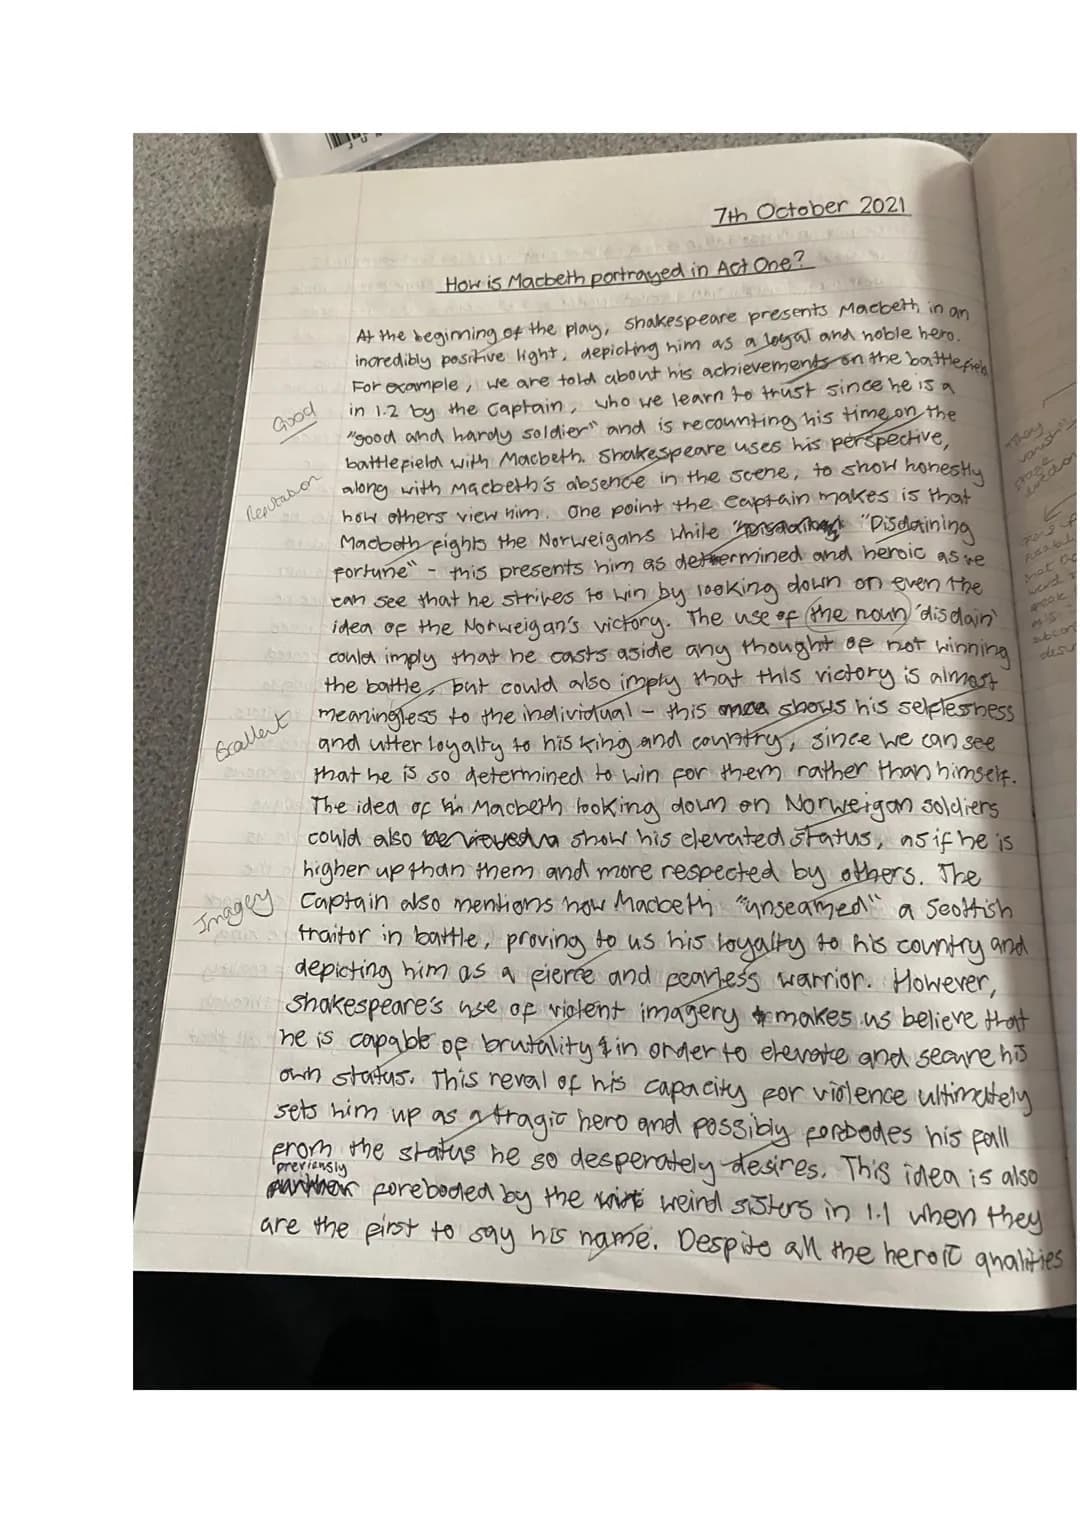 7th October 2021
How is Macbeth portrayed in Act One?
At the beginning of the play, Shakespeare presents Macbeth in an
incredibly positive light, depicting him as a loyal and noble hero.
For example, we are told about his achievements on the battlefield
in 1.2 by the Captain, who we learn to trust since he is a
Good
"good and hardy soldier" and is recounting his time on the
battlefield with Macbeth. Shakespeare uses his perspective,
along with Macbeth's absence in the scene, to show honestly
Reputation
how others view him. One point the Captain makes is that
Macbeth fights the Norweigans while "Disdaining
fortune" - this presents him as determined and heroic as we
can see that he strives to win by looking down on even the
idea of the Norweigan's victory. The use of the noun 'disdain'
could imply that he casts aside any thought of not winning
the battle, but could also imply that this victory is almost
meaningless to the individual - this shows his selflessness
Excellent
and utter loyalty to his king and country, since we can see
that he is so determined to win for them rather than himself.
The idea of Macbeth looking down on Norweigan soldiers
could also show his elevated status, as if he is
higher up than them and more respected by others. The
Imagery
Captain also mentions how Macbeth "unseamed" a Scottish
traitor in battle, proving to us his loyalty to his country and
depicting him as a fierce and fearless warrior. However,
Shakespeare's use of violent imagery makes us believe that
he is capable of brutality in order to elevate and secure his
own status. This reval of his capacity for violence ultimately
sets him up as a tragic hero and possibly forbodes his fall
from the status he so desperately desires. This idea is also
previously
foreboded by the weird sisters in 1.1 when they
are the first to say his name. Despite all the heroic qualities